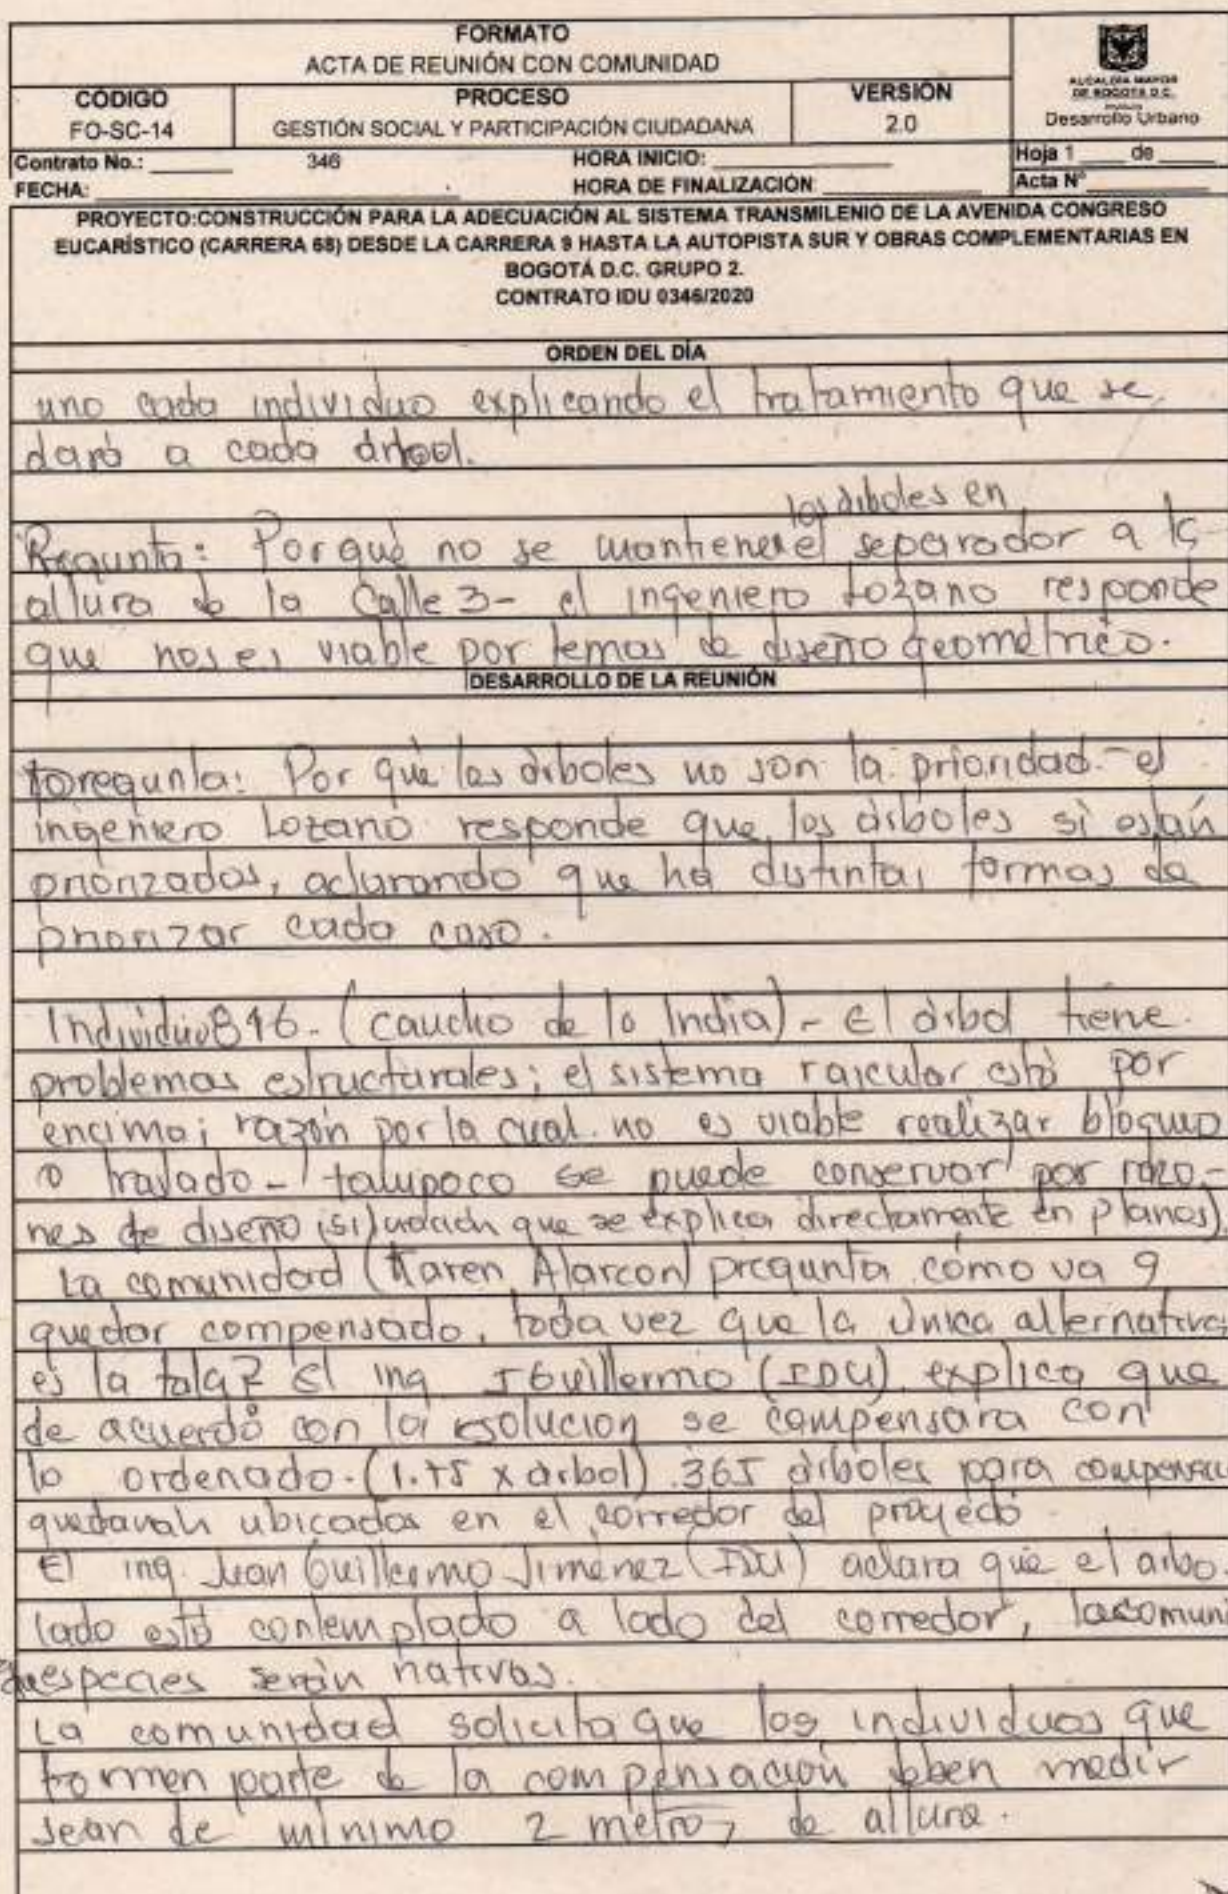 FORMATO
ACTA DE REUNIÓN CON COMUNIDAD
ALCALDÍA MAYOR
DE BOGOTÁ D.C.
Desarrollo Urbano
CÓDIGO PROCESO VERSIÓN
FO-SC-14 GESTIÓN SOCIAL Y PARTICIPACIÓN CIUDADANA 2.0
Contrato No.: 346 HORA INICIO: Hoja 1 de
FECHA: HORA DE FINALIZACIÓN Acta N°
PROYECTO:CONSTRUCCIÓN PARA LA ADECUACIÓN AL SISTEMA TRANSMILENIO DE LA AVENIDA CONGRESO
EUCARÍSTICO (CARRERA 68) DESDE LA CARRERA 9 HASTA LA AUTOPISTA SUR Y OBRAS COMPLEMENTARIAS EN
BOGOTÁ D.C. GRUPO 2.
CONTRATO IDU 0346/2020
ORDEN DEL DÍA
uno cada individuo explicando el tratamiento que se
dará a cada árbol.
los árboles en
Pregunta: Por qué no se mantiene el separador a la
altura de la Calle 3- el ingeniero Lozano responde
que no es viable por temas de diseño geométrico.
DESARROLLO DE LA REUNIÓN
Pregunta: Por qué los árboles no son la prioridad - el
ingeniero Lozano responde que los árboles sí están
priorizados, aclarando que ha distintas formas de
priorizar cada caso.
Individuo 846. (caucho de la India) - El árbol tiene
problemas estructurales; el sistema raicular está por
encima; razón por la cual no es viable realizar bloqueo
o traslado - tampoco se puede conservar por razo-
nes de diseño (situación que se explica directamente en planos).
La comunidad (Karen Alarcon) pregunta cómo va a
quedar compensado, toda vez que la única alternativa
es la tala? El ing JGuillermo (IDU) explica que
de acuerdo con la resolucion se compensara con
lo ordenado. (1.75 x árbol) 365 árboles para compensar
quedarán ubicados en el corredor del proyecto.
El ing. Juan Guillermo Jiménez (IDU) aclara que el arbo-
lado está contemplado a lado del corredor, las comuni
especies serán nativas.
La comunidad solicita que los individuos que
formen parte de la compensación deben medir
sean de mínimo 2 metros de altura.